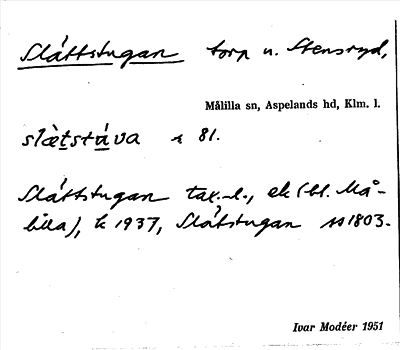 Slåttstugan torp u. Stensryd,
Målilla sn, Aspelands hd, Klm. l.
slàtstáva r 81.
Slåttstugan tax.-l., ek (bl. Må-
lilla), k 1937, Slåtstugan ss 1803.
Ivar Modéer 1951